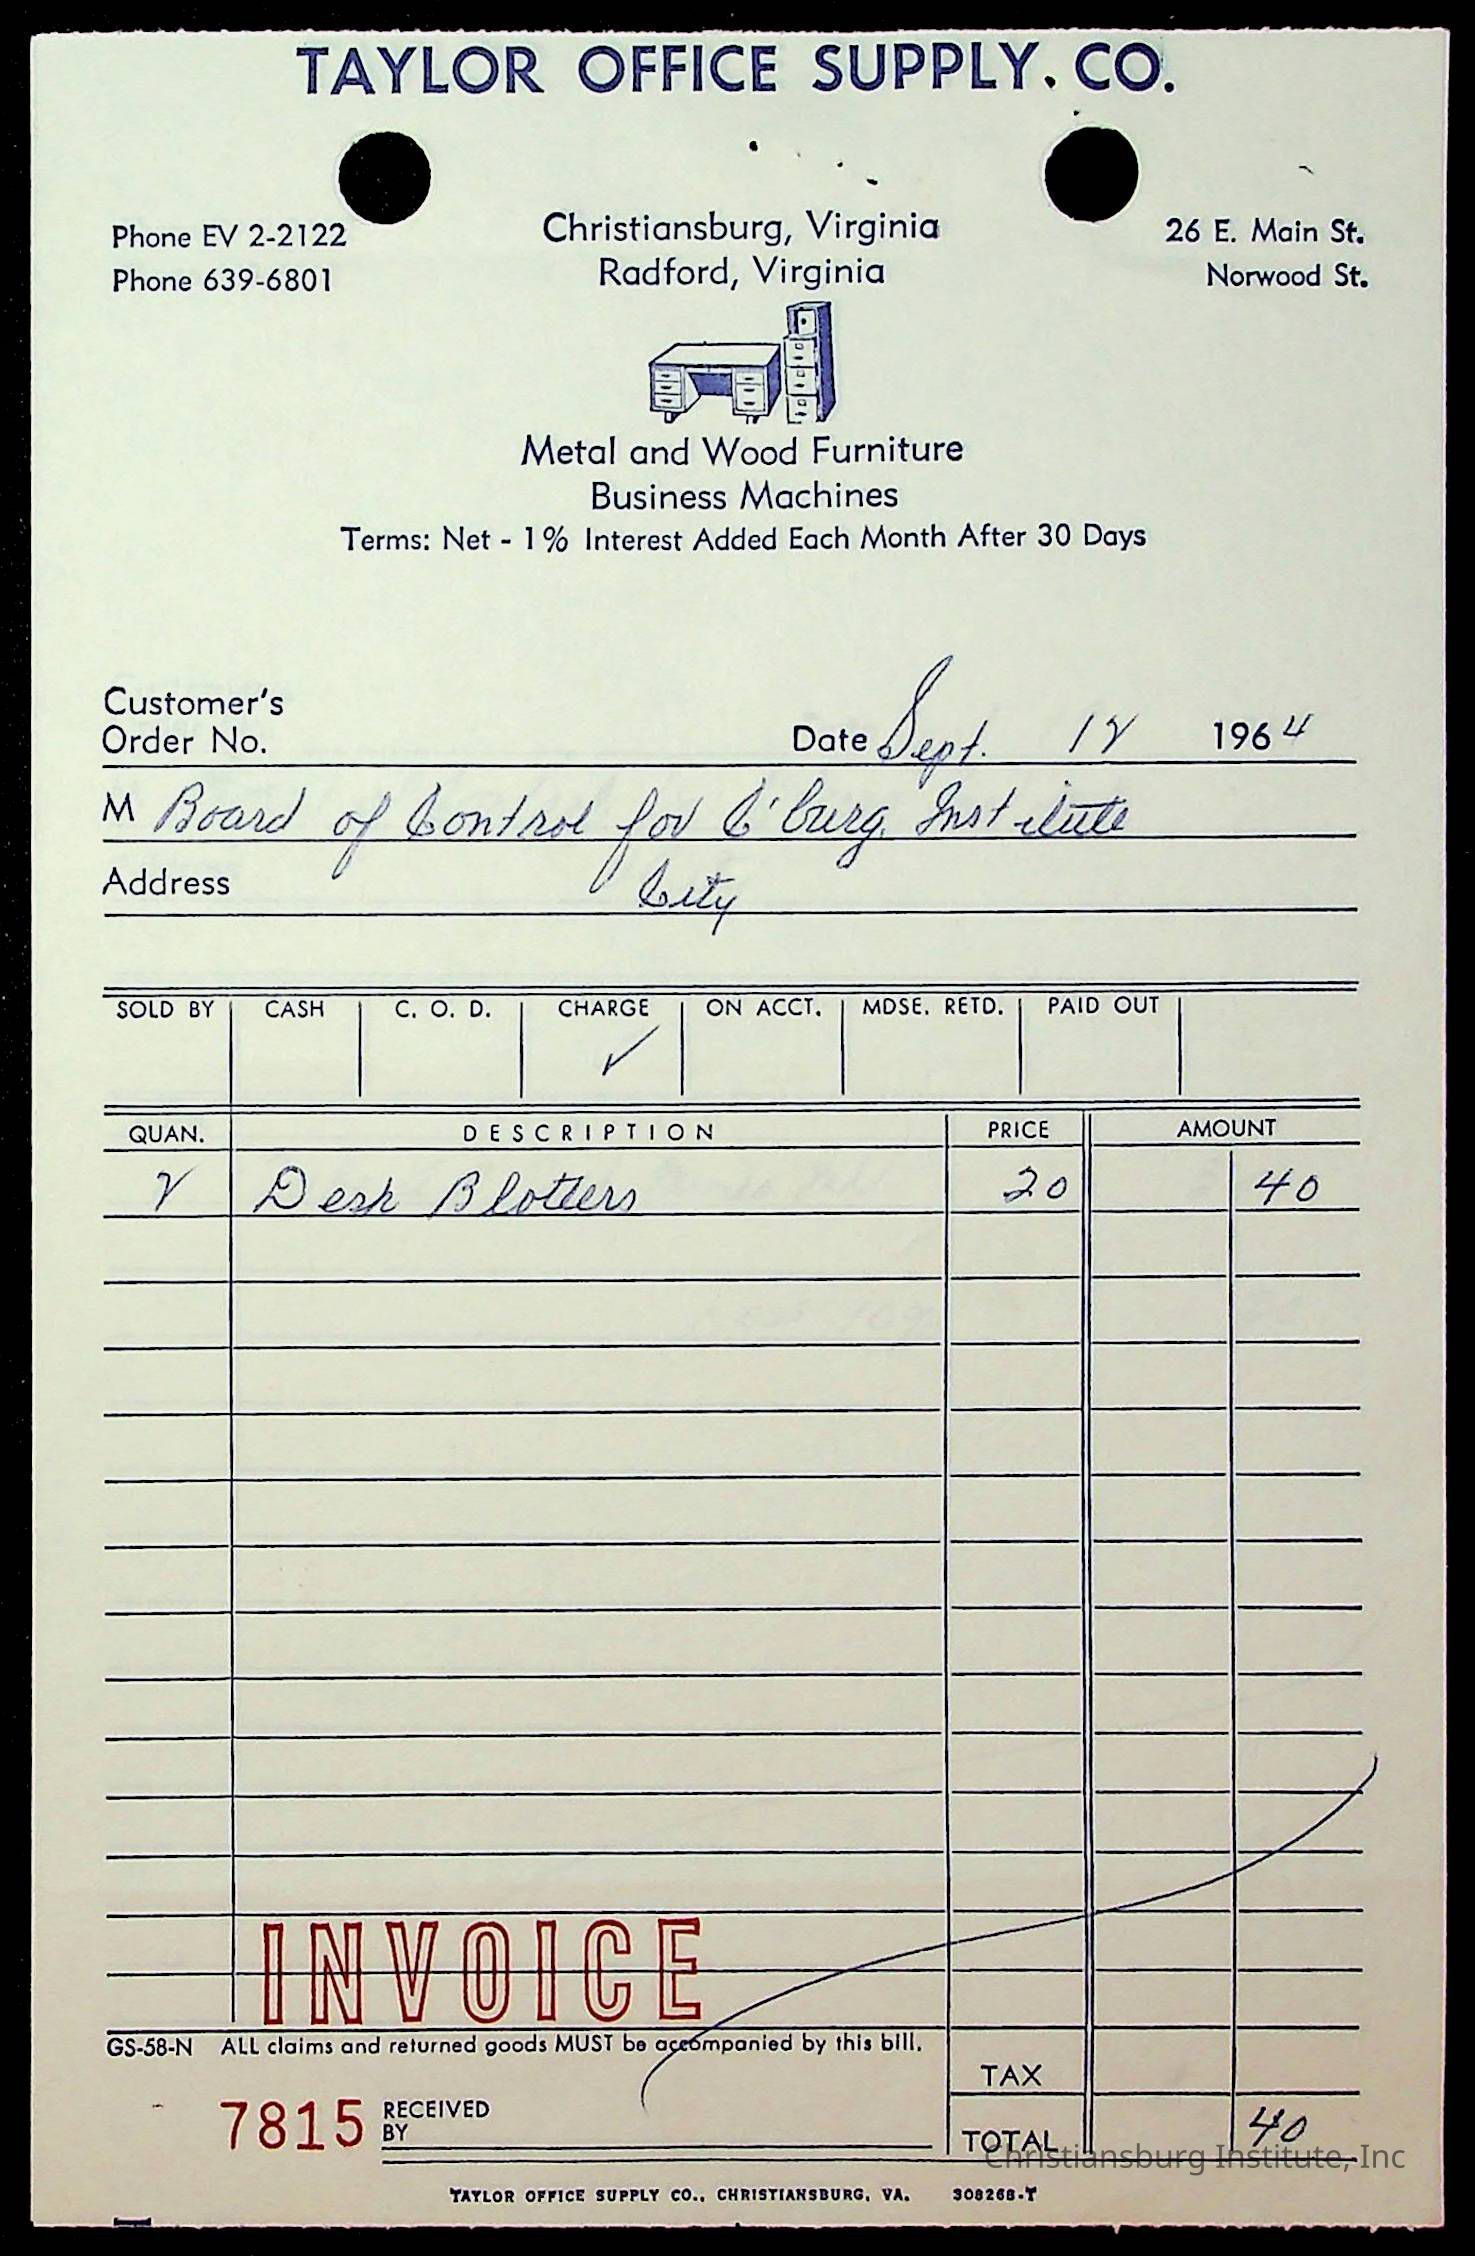 TAYLOR OFFICE SUPPLY. CO.
Phone EV 2-2122 Christiansburg, Virginia 26 E. Main St.
Phone 639-6801 Radford, Virginia Norwood St.
Metal and Wood Furniture
Business Machines
Terms: Net - 1% Interest Added Each Month After 30 Days
Customer's
Order No. Date Sept. 12 1964
M Board of Control for C'burg. Institute
Address City
SOLD BY CASH C. O. D. CHARGE ON ACCT. MDSE. RETD. PAID OUT
✓
QUAN. DESCRIPTION PRICE AMOUNT
2 Desk Blotters 20 40
INVOICE
GS-58-N ALL claims and returned goods MUST be accompanied by this bill.
TAX
7815 RECEIVED
BY
TOTAL 40
Christiansburg Institute, Inc
TAYLOR OFFICE SUPPLY CO., CHRISTIANSBURG, VA. 308268-T